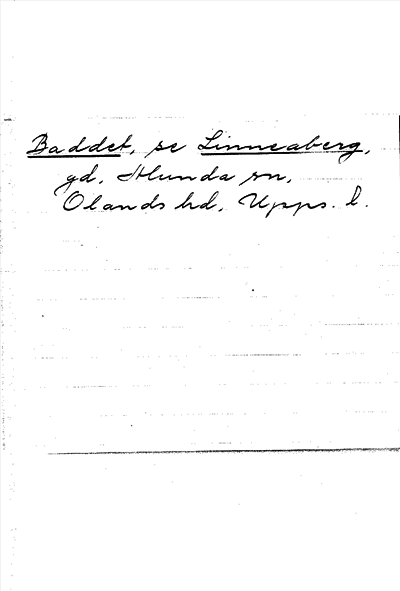 Baddet, se Linneaberg,
gd, Alunda sn,
Olands hd, Upps. l.